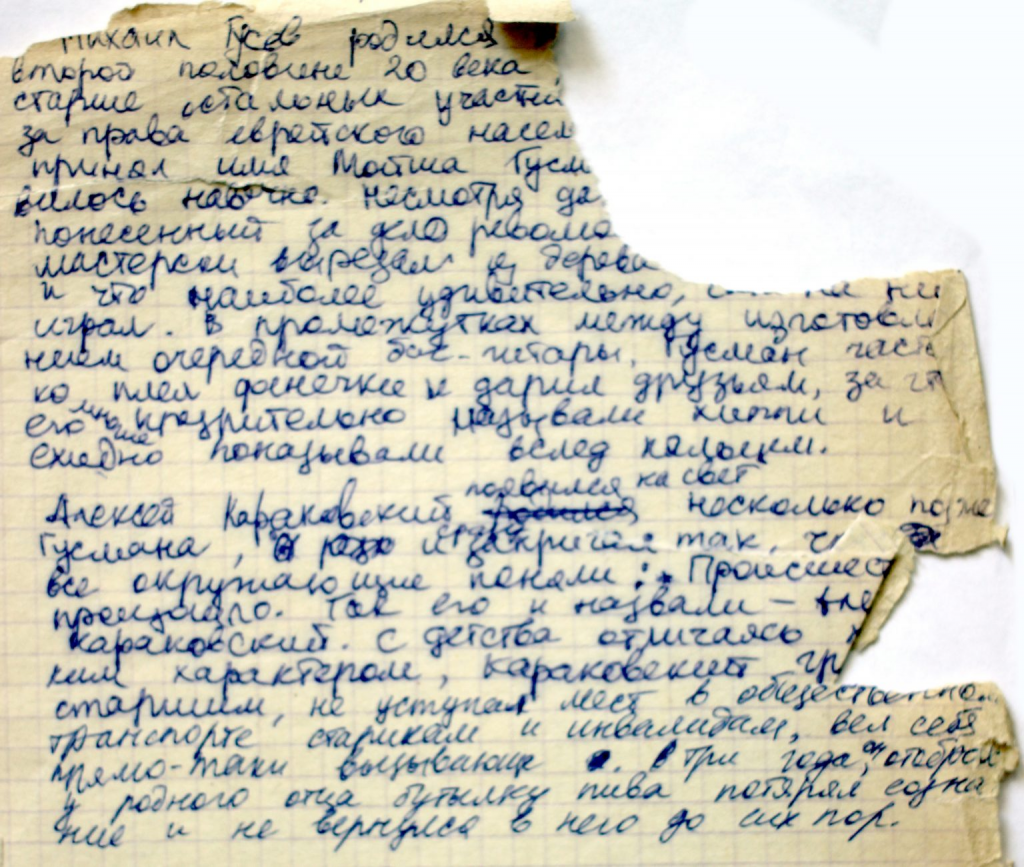 Михаил Гусев родился
второй половине 20 века,
старше остальных участни
за права еврейского насел
принял имя Мойша Гусм
вилось несмотря да
понесенный за дело револю
мастерски вырезал из дерева
и что наиболее удивительно, ни
играл. В промежутках между изготовл
нием очередной бас-гитары, Гусман част
ко плел фенечки и дарил друзьям, за чт
его презрительно называли хиппи и
ехидно показывали вслед пальцем.
появился на свет
Алексей Караковский несколько позже
Гусмана, и сразу закричал так, чт
все окружающие поняли: Происшест
произошло. Так его и назвали – Але
Караковский. С детства отличаясь
ким характером, Караковский гр
старшим, не уступал мест в общественном
транспорте старикам и инвалидам, вел себя
прямо-таки вызывающе. В три года, он, отобрав
у родного отца бутылку пива потерял созна
ние и не вернулся в него до сих пор.